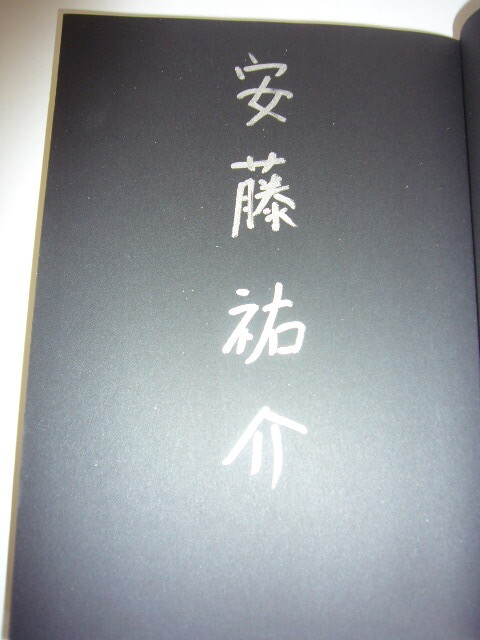 安藤祐介